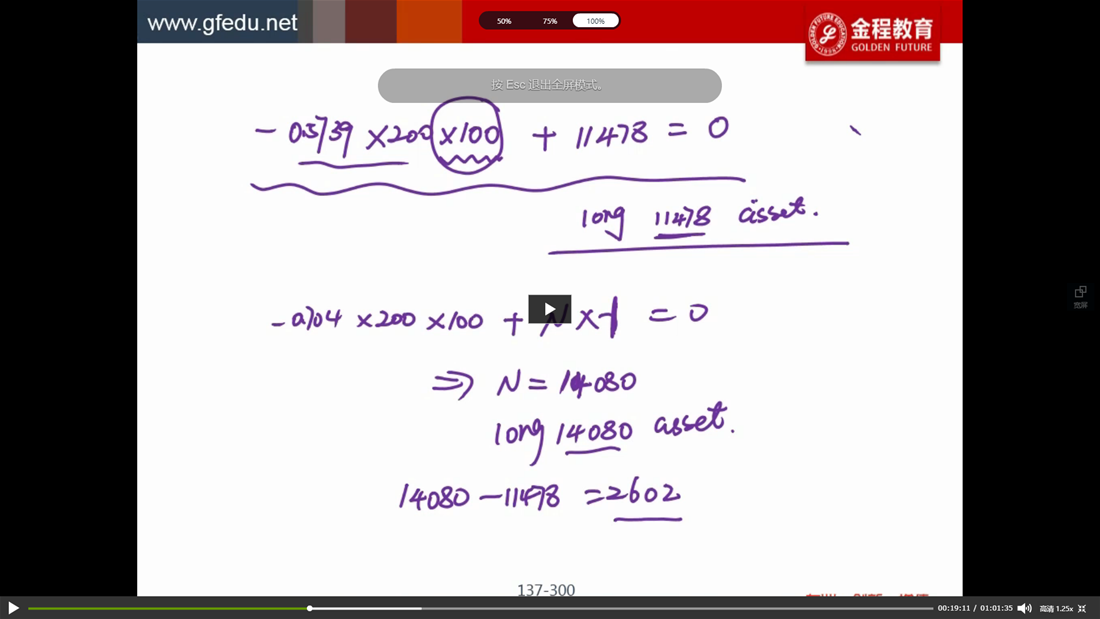 www.gfedu.net
50% 75% 100%
金程教育
GOLDEN FUTURE
按 Esc 退出全屏模式。
- 0.5739 ×200 ×100 + 11478 = 0
long 11478 asset.
- 0.704 ×200 ×100 + N × 1 = 0
⇒ N = 14080
long 14080 asset.
14080 - 11478 = 2602
宽屏
137-300
00:19:11 / 01:01:35 高清 1.25x